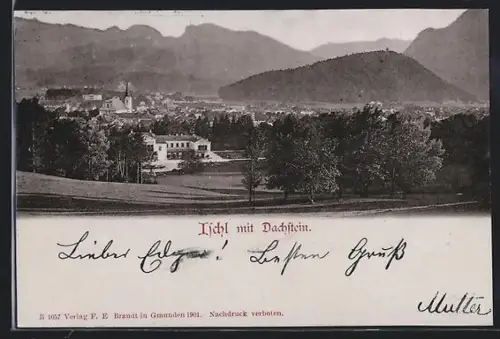 Ischl mit Dachstein.
Lieber Edgar! Besten Gruß
Mutter
B 1057 Verlag F. E. Brandt in Gmunden 1901. Nachdruck verboten.